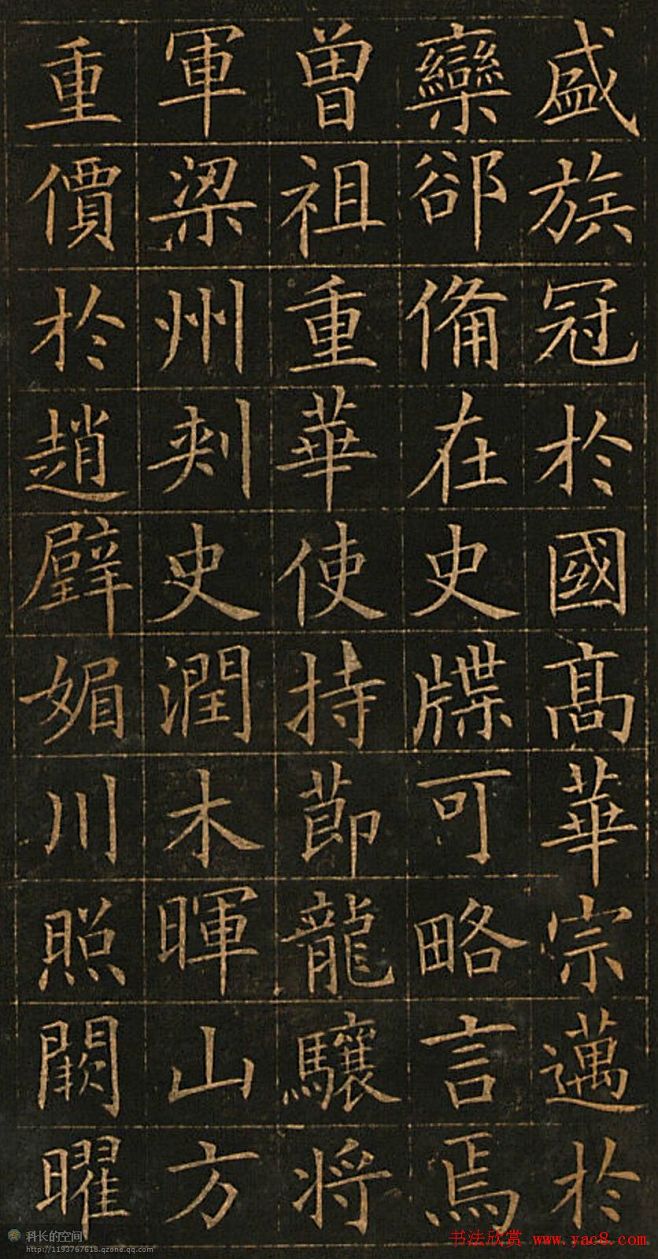 盛族冠於國高華宗邁於
欒郤備在史牒可略言焉
曾祖重華使持節龍驤將
軍梁州刺史潤木暉山方
重價於趙璧媚川照闕曜
科长的空间
http://1193767618.qzone.qq.com
书法欣赏 www.yac8.com